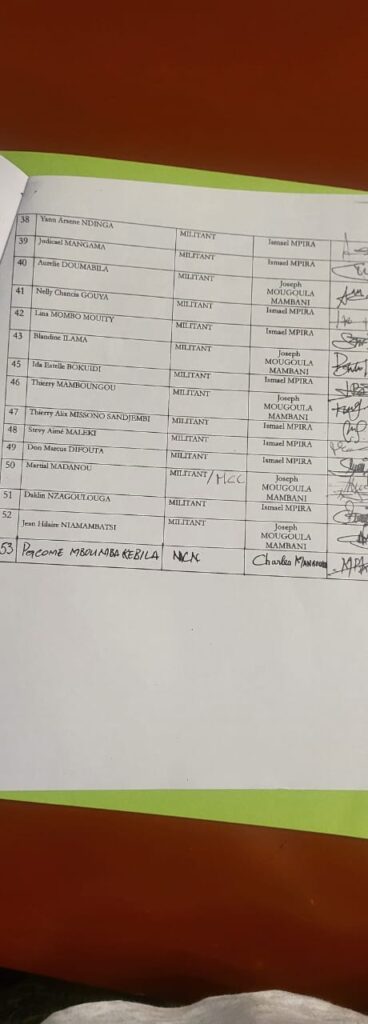 38 Yann Arsene NDINGA MILITANT Ismael MPIRA
39 Judicael MANGAMA MILITANT Ismael MPIRA
40 Aurelie DOUMABILA MILITANT Joseph
MOUGOULA
MAMBANI
41 Nelly Chancia GOUYA MILITANT Ismael MPIRA
42 Lina MOMBO MOUITY MILITANT Ismael MPIRA
43 Blandine ILAMA MILITANT Joseph
MOUGOULA
MAMBANI
45 Ida Estelle BOKUIDI MILITANT Ismael MPIRA
46 Thierry MAMBOUNGOU MILITANT Joseph
MOUGOULA
MAMBANI
47 Thierry Alix MISSONO SANDJEMBI MILITANT Ismael MPIRA
48 Stevy Aimé MALEKI MILITANT Ismael MPIRA
49 Don Marcus DIFOUTA MILITANT Ismael MPIRA
50 Martial MADANOU MILITANT/MCC Joseph
MOUGOULA
MAMBANI
51 Daklin NZAGOULOUGA MILITANT Ismael MPIRA
52 Jean Hilaire NIAMAMBATSI MILITANT Joseph
MOUGOULA
MAMBANI
53 PACOME MBOUMBA KEBILA Charles